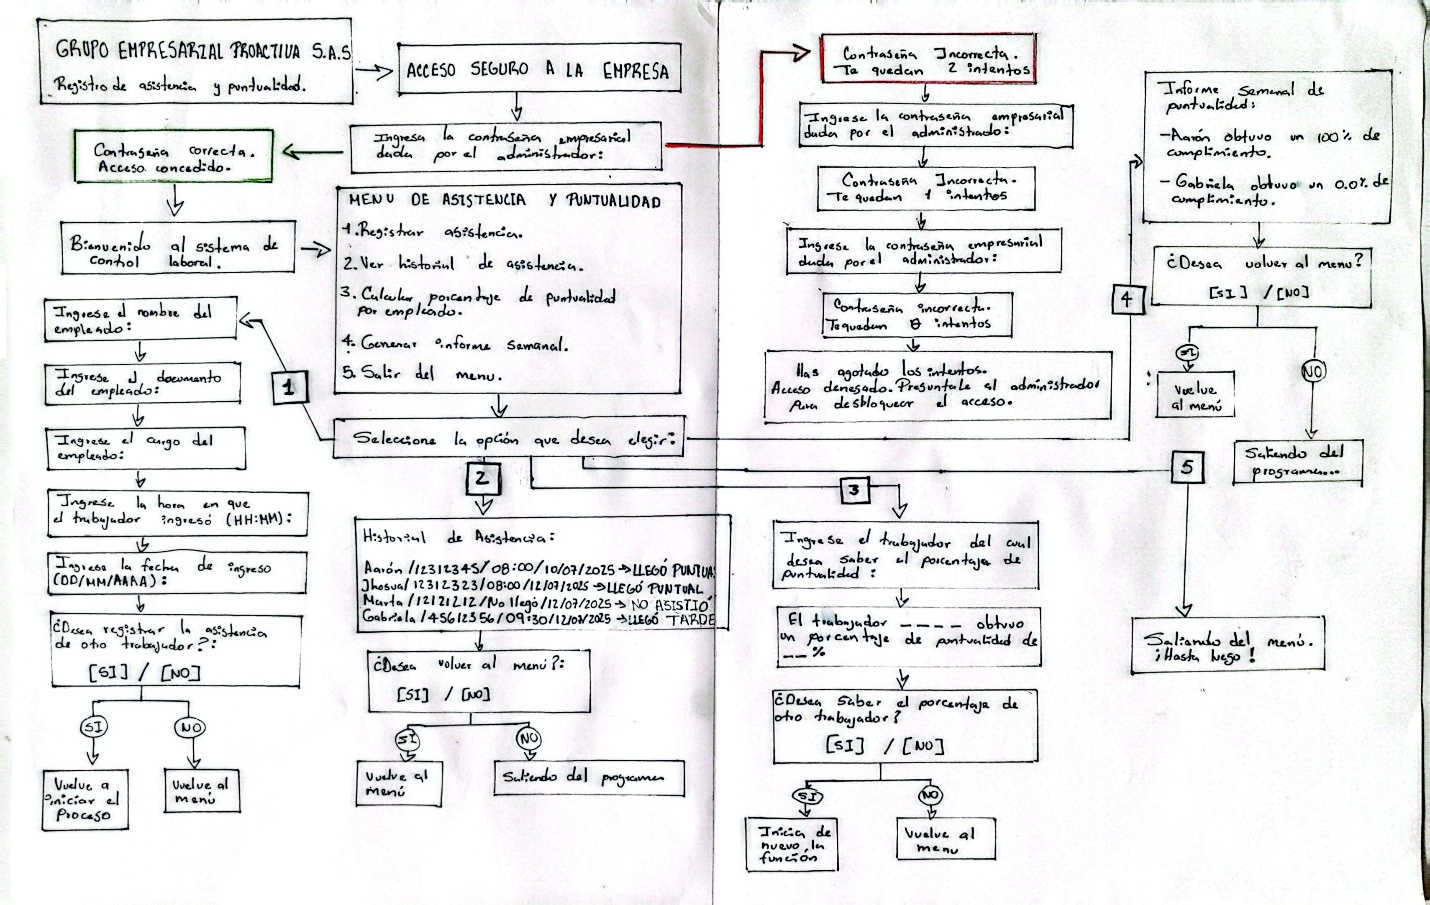 GRUPO EMPRESARIAL PROACTIVA S.A.S
Registro de asistencia y puntualidad.
ACCESO SEGURO A LA EMPRESA
Ingresa la contraseña empresarial
dada por el administrador:
Contraseña correcta.
Acceso concedido.
Bienvenido al sistema de
control laboral.
MENU DE ASISTENCIA Y PUNTUALIDAD
1. Registrar asistencia.
2. Ver historial de asistencia.
3. Calcular porcentaje de puntualidad
por empleado.
4. Generar informe semanal.
5. Salir del menu.
Seleccione la opción que desea elegir:
1
Ingrese el nombre del
empleado:
Ingrese el documento
del empleado:
Ingrese el cargo del
empleado:
Ingrese la hora en que
el trabajador ingresó (HH:MM):
Ingrese la fecha de ingreso
(DD/MM/AAAA):
¿Desea registrar la asistencia
de otro trabajador?:
[SI] / [NO]
SI
NO
Vuelve a
iniciar el
proceso
Vuelve al
menú
2
Historial de Asistencia:
Aarón /12312345/ 08:00/10/07/2025 → LLEGÓ PUNTUA
Jhosua/ 12312323/08:00/12/07/2025 → LLEGÓ PUNTUAL
Marta /12121212/No llegó/12/07/2025 → NO ASISTIÓ
Gabriela /45612356/09:30/12/07/2025 → LLEGÓ TARDE
¿Desea volver al menú?:
[SI] / [NO]
SI
NO
Vuelve al
menú
Saliendo del programa
Contraseña Incorrecta.
Te quedan 2 intentos
Ingrese la contraseña empresarial
dada por el administrado:
Contraseña Incorrecta.
Te quedan 1 intentos
Ingrese la contraseña empresarial
dada por el administrador:
Contraseña incorrecta.
Te quedan 0 intentos
Has agotado los intentos.
Acceso denegado. Preguntale al administrador
para desbloquear el acceso.
3
Ingrese el trabajador del cual
desea saber el porcentaje de
puntualidad:
El trabajador _ _ _ _ obtuvo
un porcentaje de puntualidad de
_ _ %
¿Desea saber el porcentaje de
otro trabajador?
[SI] / [NO]
SI
NO
Inicia de
nuevo la
función
Vuelve al
menu
4
Informe Semanal de
puntualidad:
-Aarón obtuvo un 100% de
cumplimiento.
-Gabriela obtuvo un 0.0% de
cumplimiento.
¿Desea volver al menu?
[SI] / [NO]
SI
NO
Vuelve
al menú
Saliendo del
programa...
5
Saliendo del menú.
¡Hasta luego!